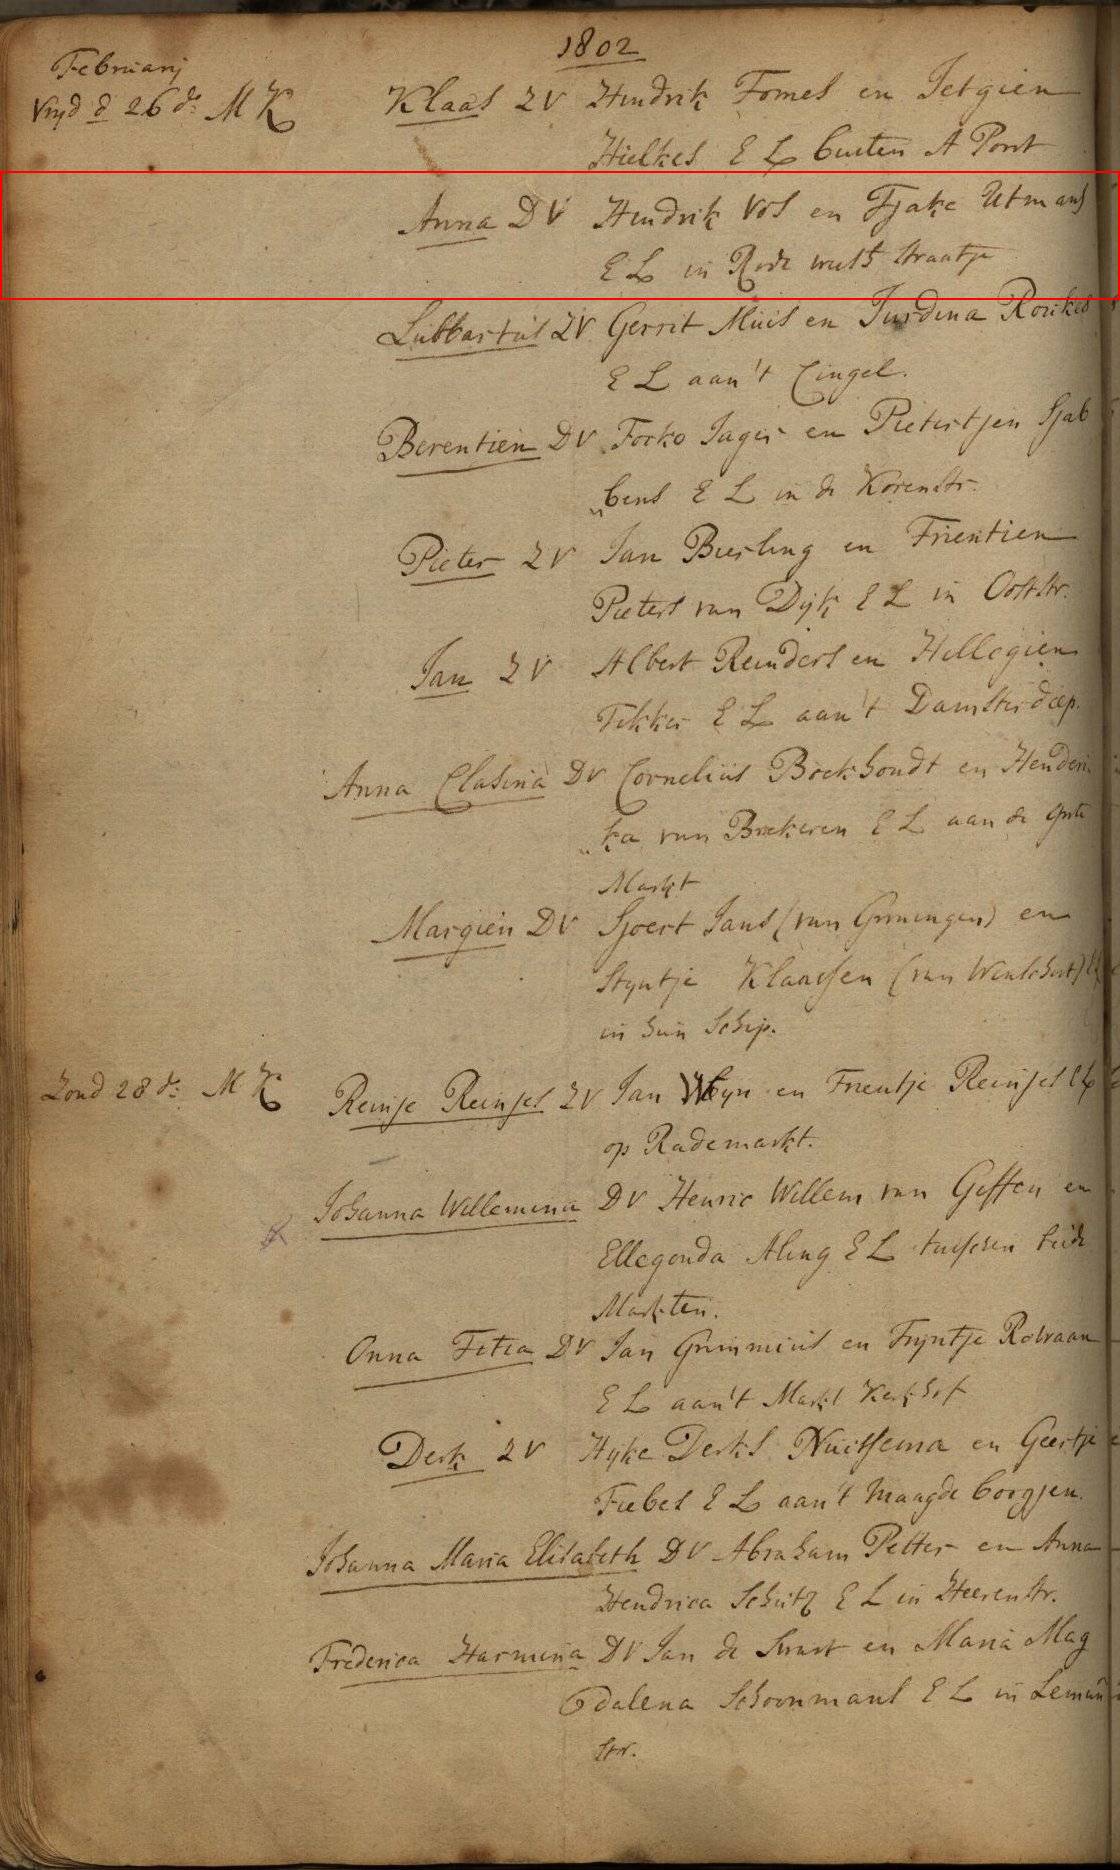 1802
Februarij
Vrijd d 26 do. M K Klaas Z V Hendrik Fomes en Jetgien
Hielkes E L buiten A Port
Anna D V Hendrik Vos en Tjake Utmans
E L in Rode straatje
Lubbartus Z V Gerrit Muis en Jurdina
E L aan 't Cingel.
Berentien D V Focko Jager en Pietertjen Sjab
„bens E L in de Korenstr.
Pieter Z V Jan en Trientien
Pieters van Dijk E L in Ooststr.
Jan Z V Albert Reinders en Hillegien
E L aan 't Damsterdiep.
Anna Clasina D V Cornelius Boekhoudt en Henderi
„ka van E L aan de grote
Markt
Margien D V Sjoert Jans (van Groningen) en
Styntje Klaassen (van ) E L
in hun Schip.
Zond 28 do. M K Reinje Reinjes Z V Jan en Trientje Reinjes E L
op Rademarkt.
Johanna Willemina D V Henric Willem van Geffen en
Ellegonda Aling E L tusschen beide
Markten.
Onna Fetia D V Jan Grimmius en Tryntje
E L aan 't Kerkhof
Derk Z V Derks en Geertje
Fiebes E L aan 't Maagde borgjen.
Johanna Maria Elisabeth D V Abraham Pelter en Anna
Hendrica Schutz E L in Heerenstr.
Frederica Harmina D V Jan de Swart en Maria Mag
dalena Schoonmans E L in
str.